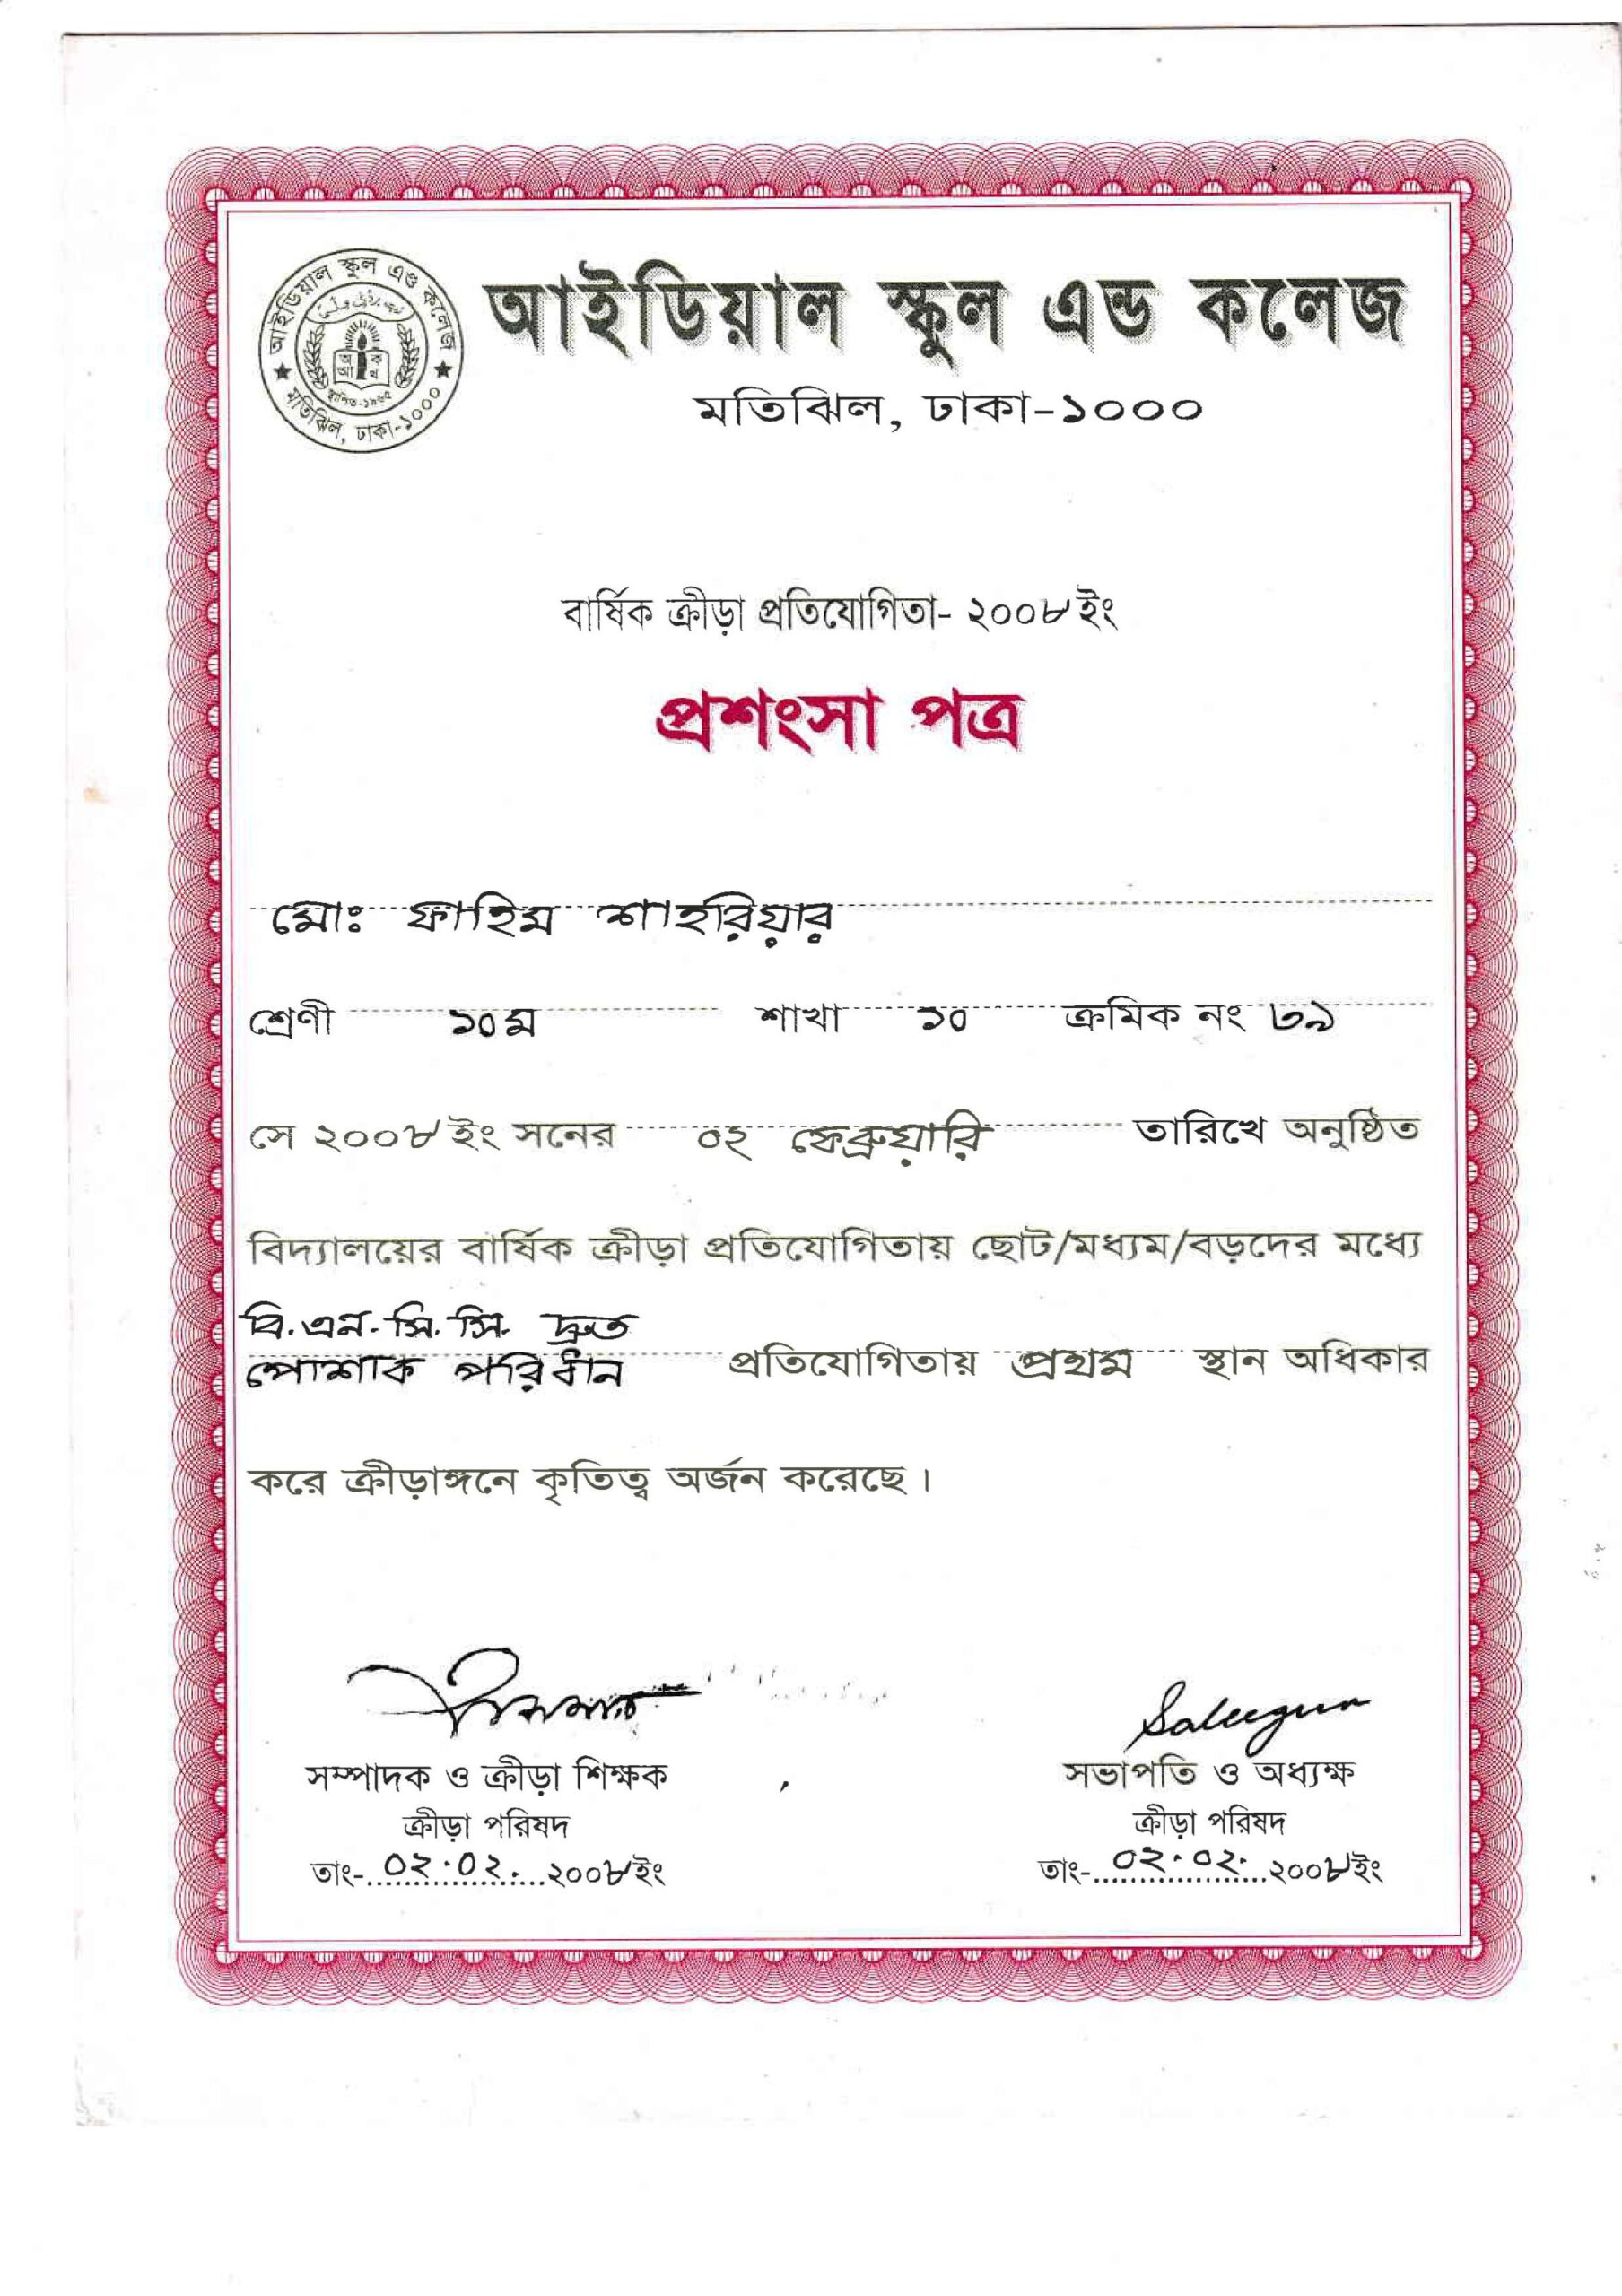 আইডিয়াল স্কুল এণ্ড কলেজ
মতিঝিল, ঢাকা-১০০০
স্থাপিত-১৯৬৫
আইডিয়াল স্কুল এন্ড কলেজ
মতিঝিল, ঢাকা-১০০০
বার্ষিক ক্রীড়া প্রতিযোগিতা- ২০০৮ ইং
প্রশংসা পত্র
মোঃ ফাহিম শাহরিয়ার
শ্রেণী ১০ম শাখা ১০ ক্রমিক নং ৮৯
সে ২০০৮ ইং সনের ০২ ফেব্রুয়ারি তারিখে অনুষ্ঠিত
বিদ্যালয়ের বার্ষিক ক্রীড়া প্রতিযোগিতায় ছোট/মধ্যম/বড়দের মধ্যে
বি.এন.সি.সি. দ্রুত
পোশাক পরিধান প্রতিযোগিতায় প্রথম স্থান অধিকার
করে ক্রীড়াঙ্গনে কৃতিত্ব অর্জন করেছে।
সম্পাদক ও ক্রীড়া শিক্ষক
ক্রীড়া পরিষদ
তাং-০২.০২.২০০৮ইং
সভাপতি ও অধ্যক্ষ
ক্রীড়া পরিষদ
তাং-০২.০২.২০০৮ইং